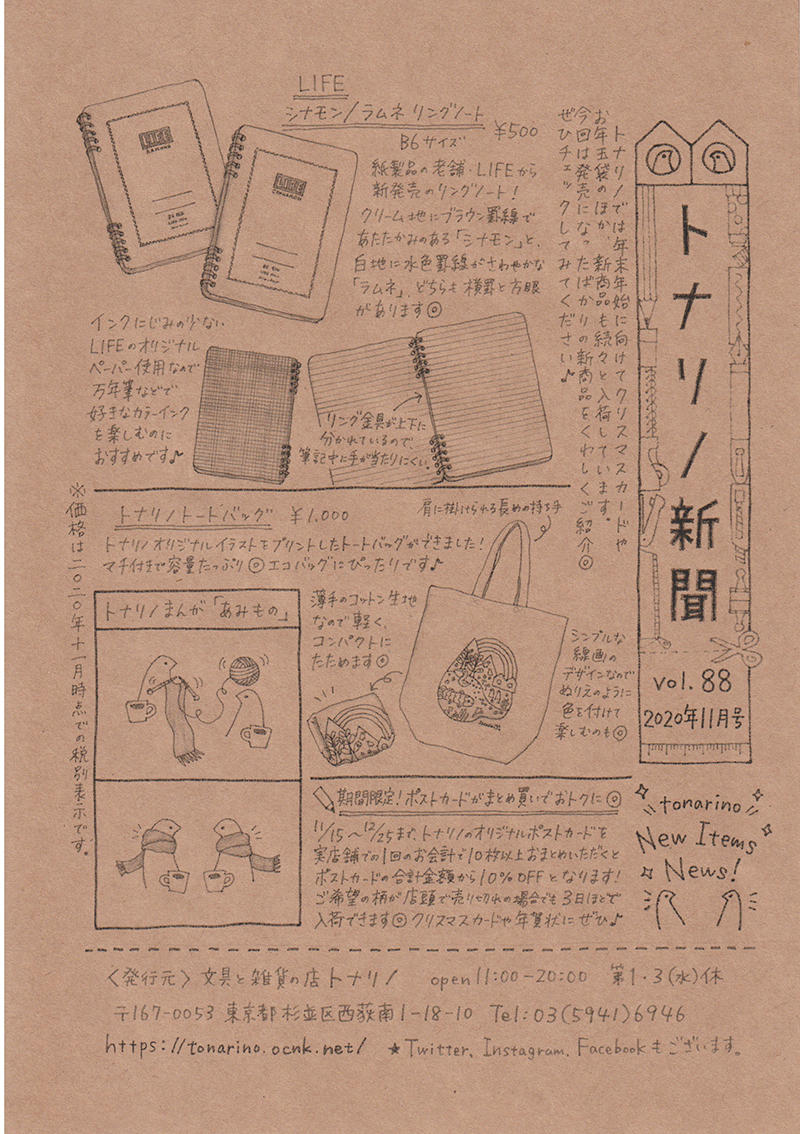 トナリノ新聞
vol. 88
2020年11月号
トナリノでは年末年始に向けてクリスマスカードや
お年玉袋のほか、新商品も続々と入荷しています。
今回は発売になったばかりの新商品をくわしくご紹介◎
ぜひチェックしてみてください♪
LIFE
シナモン/ラムネ リングノート
¥500
B6サイズ
紙製品の老舗・LIFEから
新発売のリングノート!
クリーム地にブラウン罫線で
あたたかみのある「シナモン」と、
白地に水色罫線がさわやかな
「ラムネ」、どちらも横罫と方眼
があります◎
LIFE
LIFE
CINNAMON
インクにじみの少ない
LIFEのオリジナル
ペーパー使用なので
万年筆などで
好きなカラーインク
を楽しむのに
おすすめです♪
リング金具が上下に
分かれているので、
筆記中に手が当たりにくい。
トナリノトートバッグ ¥1,000
トナリノオリジナルイラストをプリントしたトートバッグができました!
マチ付きで容量たっぷり◎エコバッグにぴったりです♪
肩に掛けられる長めの持ち手
薄手のコットン生地
なので軽く、
コンパクトに
たためます◎
シンプルな
線画の
デザインなので
ぬりえのように
色を付けて
楽しむのも◎
トナリノまんが「あみもの」
※価格は二〇二〇年十一月時点での税別表示です。
期間限定!ポストカードがまとめ買いでおトクに◎
11/15〜12/25まで、トナリノのオリジナルポストカードを
実店舗での1回のお会計で10枚以上おまとめいただくと
ポストカードの合計金額から10%OFFとなります!
ご希望の柄が店頭で売り切れの場合でも3日ほどで
入荷できます◎クリスマスカードや年賀状にぜひ♪
tonarino
New Items
News!
〈発行元〉文具と雑貨の店トナリノ open 11:00-20:00 第1・3(水)休
〒167-0053 東京都杉並区西荻南1-18-10 Tel:03(5941)6946
https://tonarino.ocnk.net/ ★Twitter、Instagram、Facebookもございます。